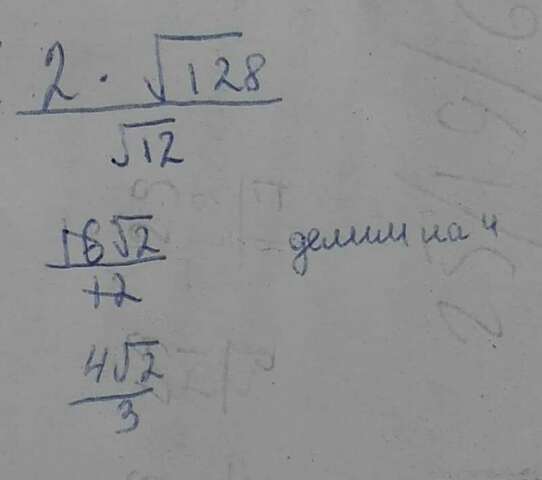 2 · √128
√12
16√2 делим на 4
12
4√2
3